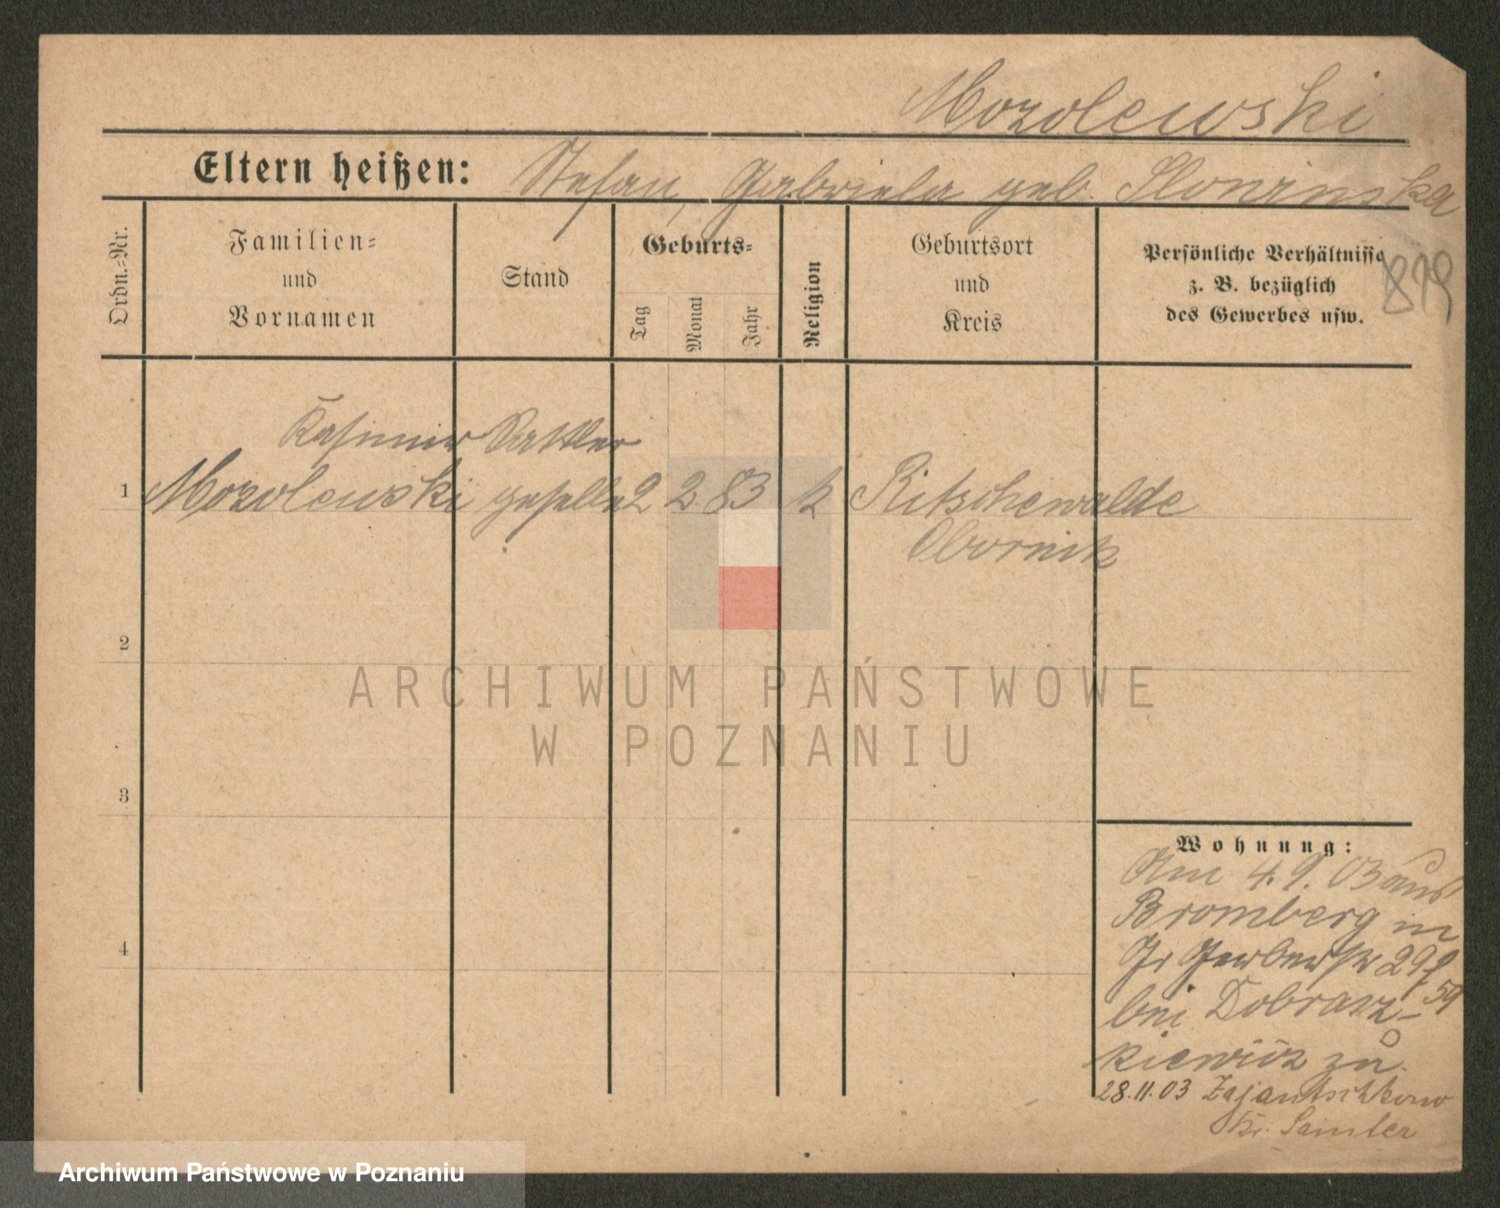 Mozolewski
Eltern heißen: Stefan, Gabriela geb. Slominska
Ordn.-Nr.
Familien-
und
Vornamen
Stand
Geburts-
Tag
Monat
Jahr
Religion
Geburtsort
und
Kreis
Persönliche Verhältnisse
z. B. bezüglich
des Gewerbes usw.
819
Kasimir Sattler
1 Mozolewski geselle 2 2. 83 k Ritschewalde
Obornik
2
3
4
Wohnung:
Am 4.9.03 aus
Bromberg in
Gr Gerberstr 29
59
bei Dobraz-
kiewicz zu.
28.11.03 Zajantschkowo
Kr. Samter
ARCHIWUM PAŃSTWOWE
W POZNANIU
Archiwum Państwowe w Poznaniu